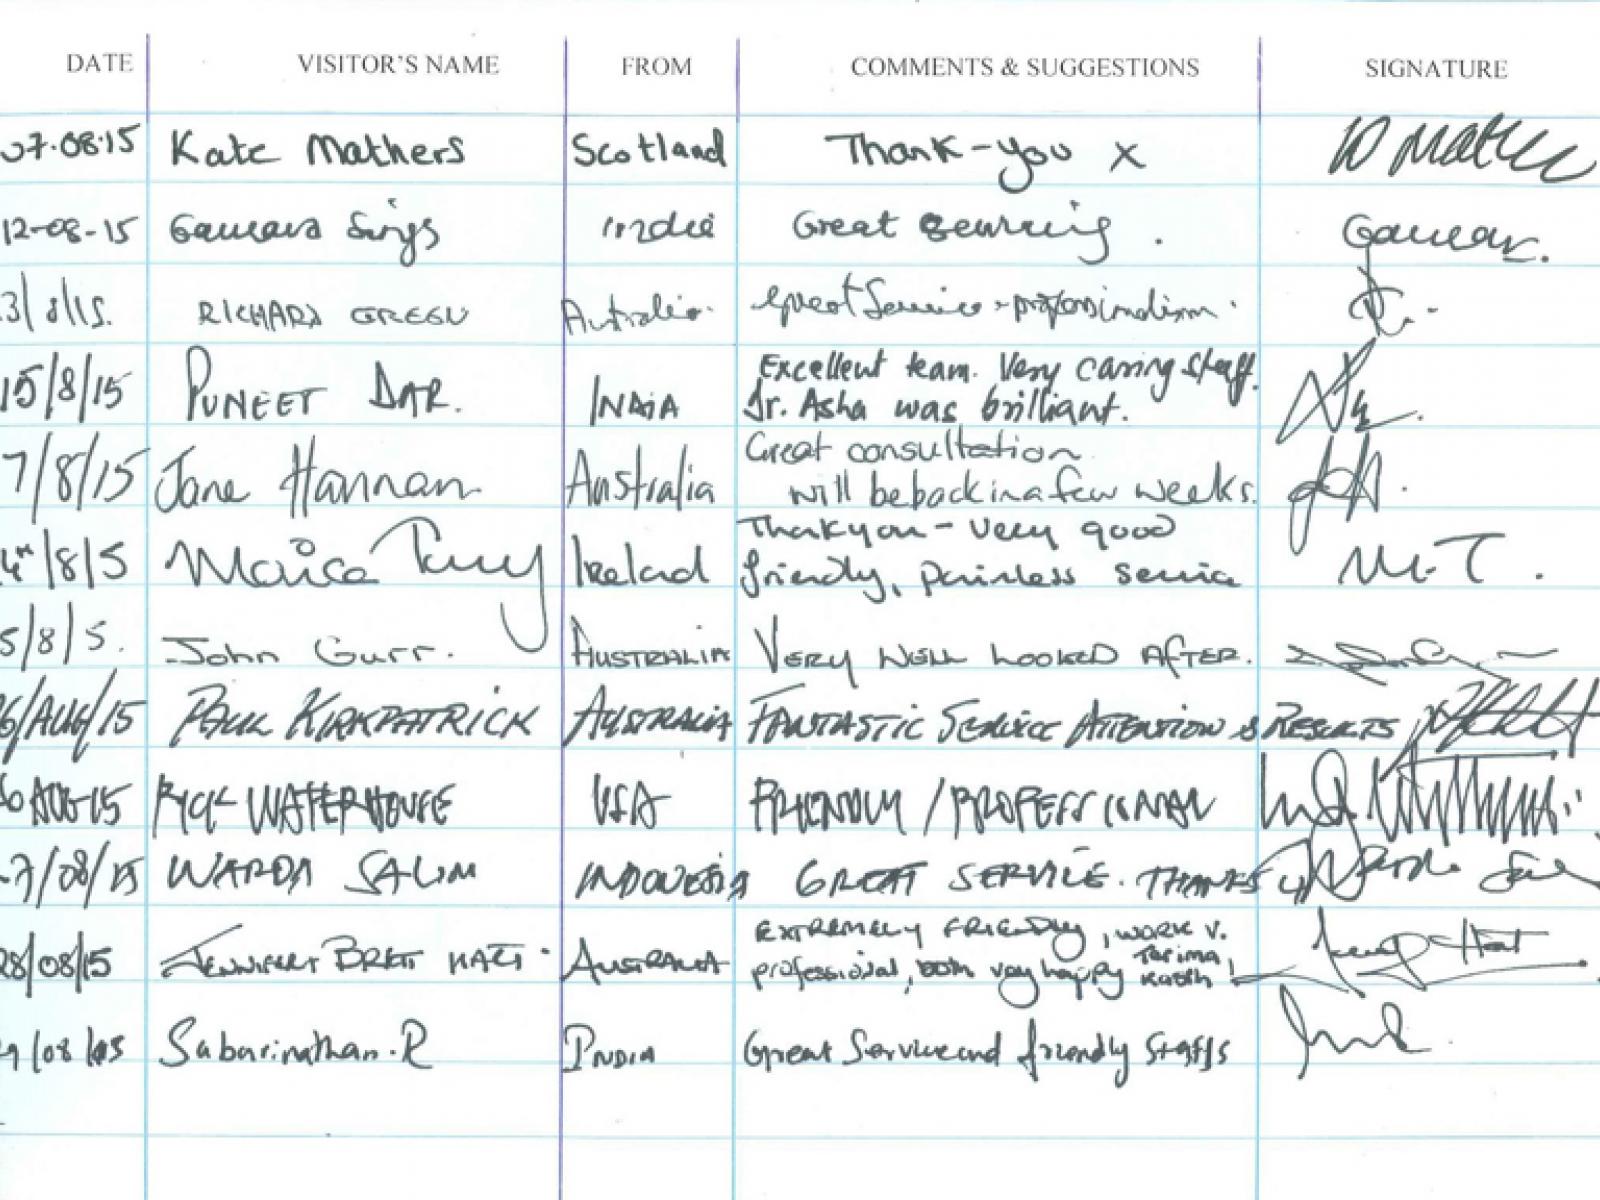 DATE VISITOR'S NAME FROM COMMENTS & SUGGESTIONS SIGNATURE
07.08.15 Kate Mathers Scotland Thank-you x
12-08-15 India Great
3/8/15. RICHARD Australia. Great Service - professionalism.
15/8/15 PUNEET DAR. INDIA Excellent team. Very caring staff.
Dr. Asha was brilliant.
7/8/15 Jane Hannan Australia Great consultation
will be back in a few weeks.
/8/5 Ireland Thankyou - very good
friendly, painless service M.T.
5/8/5. John Gurr. AUSTRALIA VERY WELL LOOKED AFTER.
6/AUG/15 PAUL KIRKPATRICK AUSTRALIA FANTASTIC SERVICE ATTENTION & RESULTS
6 AUG 15 RICK WATERHOUSE USA FRIENDLY / PROFESSIONAL
27/08/15 WARDA SALIM INDONESIA GREAT SERVICE. THANKS
28/08/15 JENNIFER BRETT HART. AUSTRALIA EXTREMELY FRIENDLY, WORK V.
professional, both very happy
9/08/15 Sabarinathan.R INDIA Great Service and friendly staffs